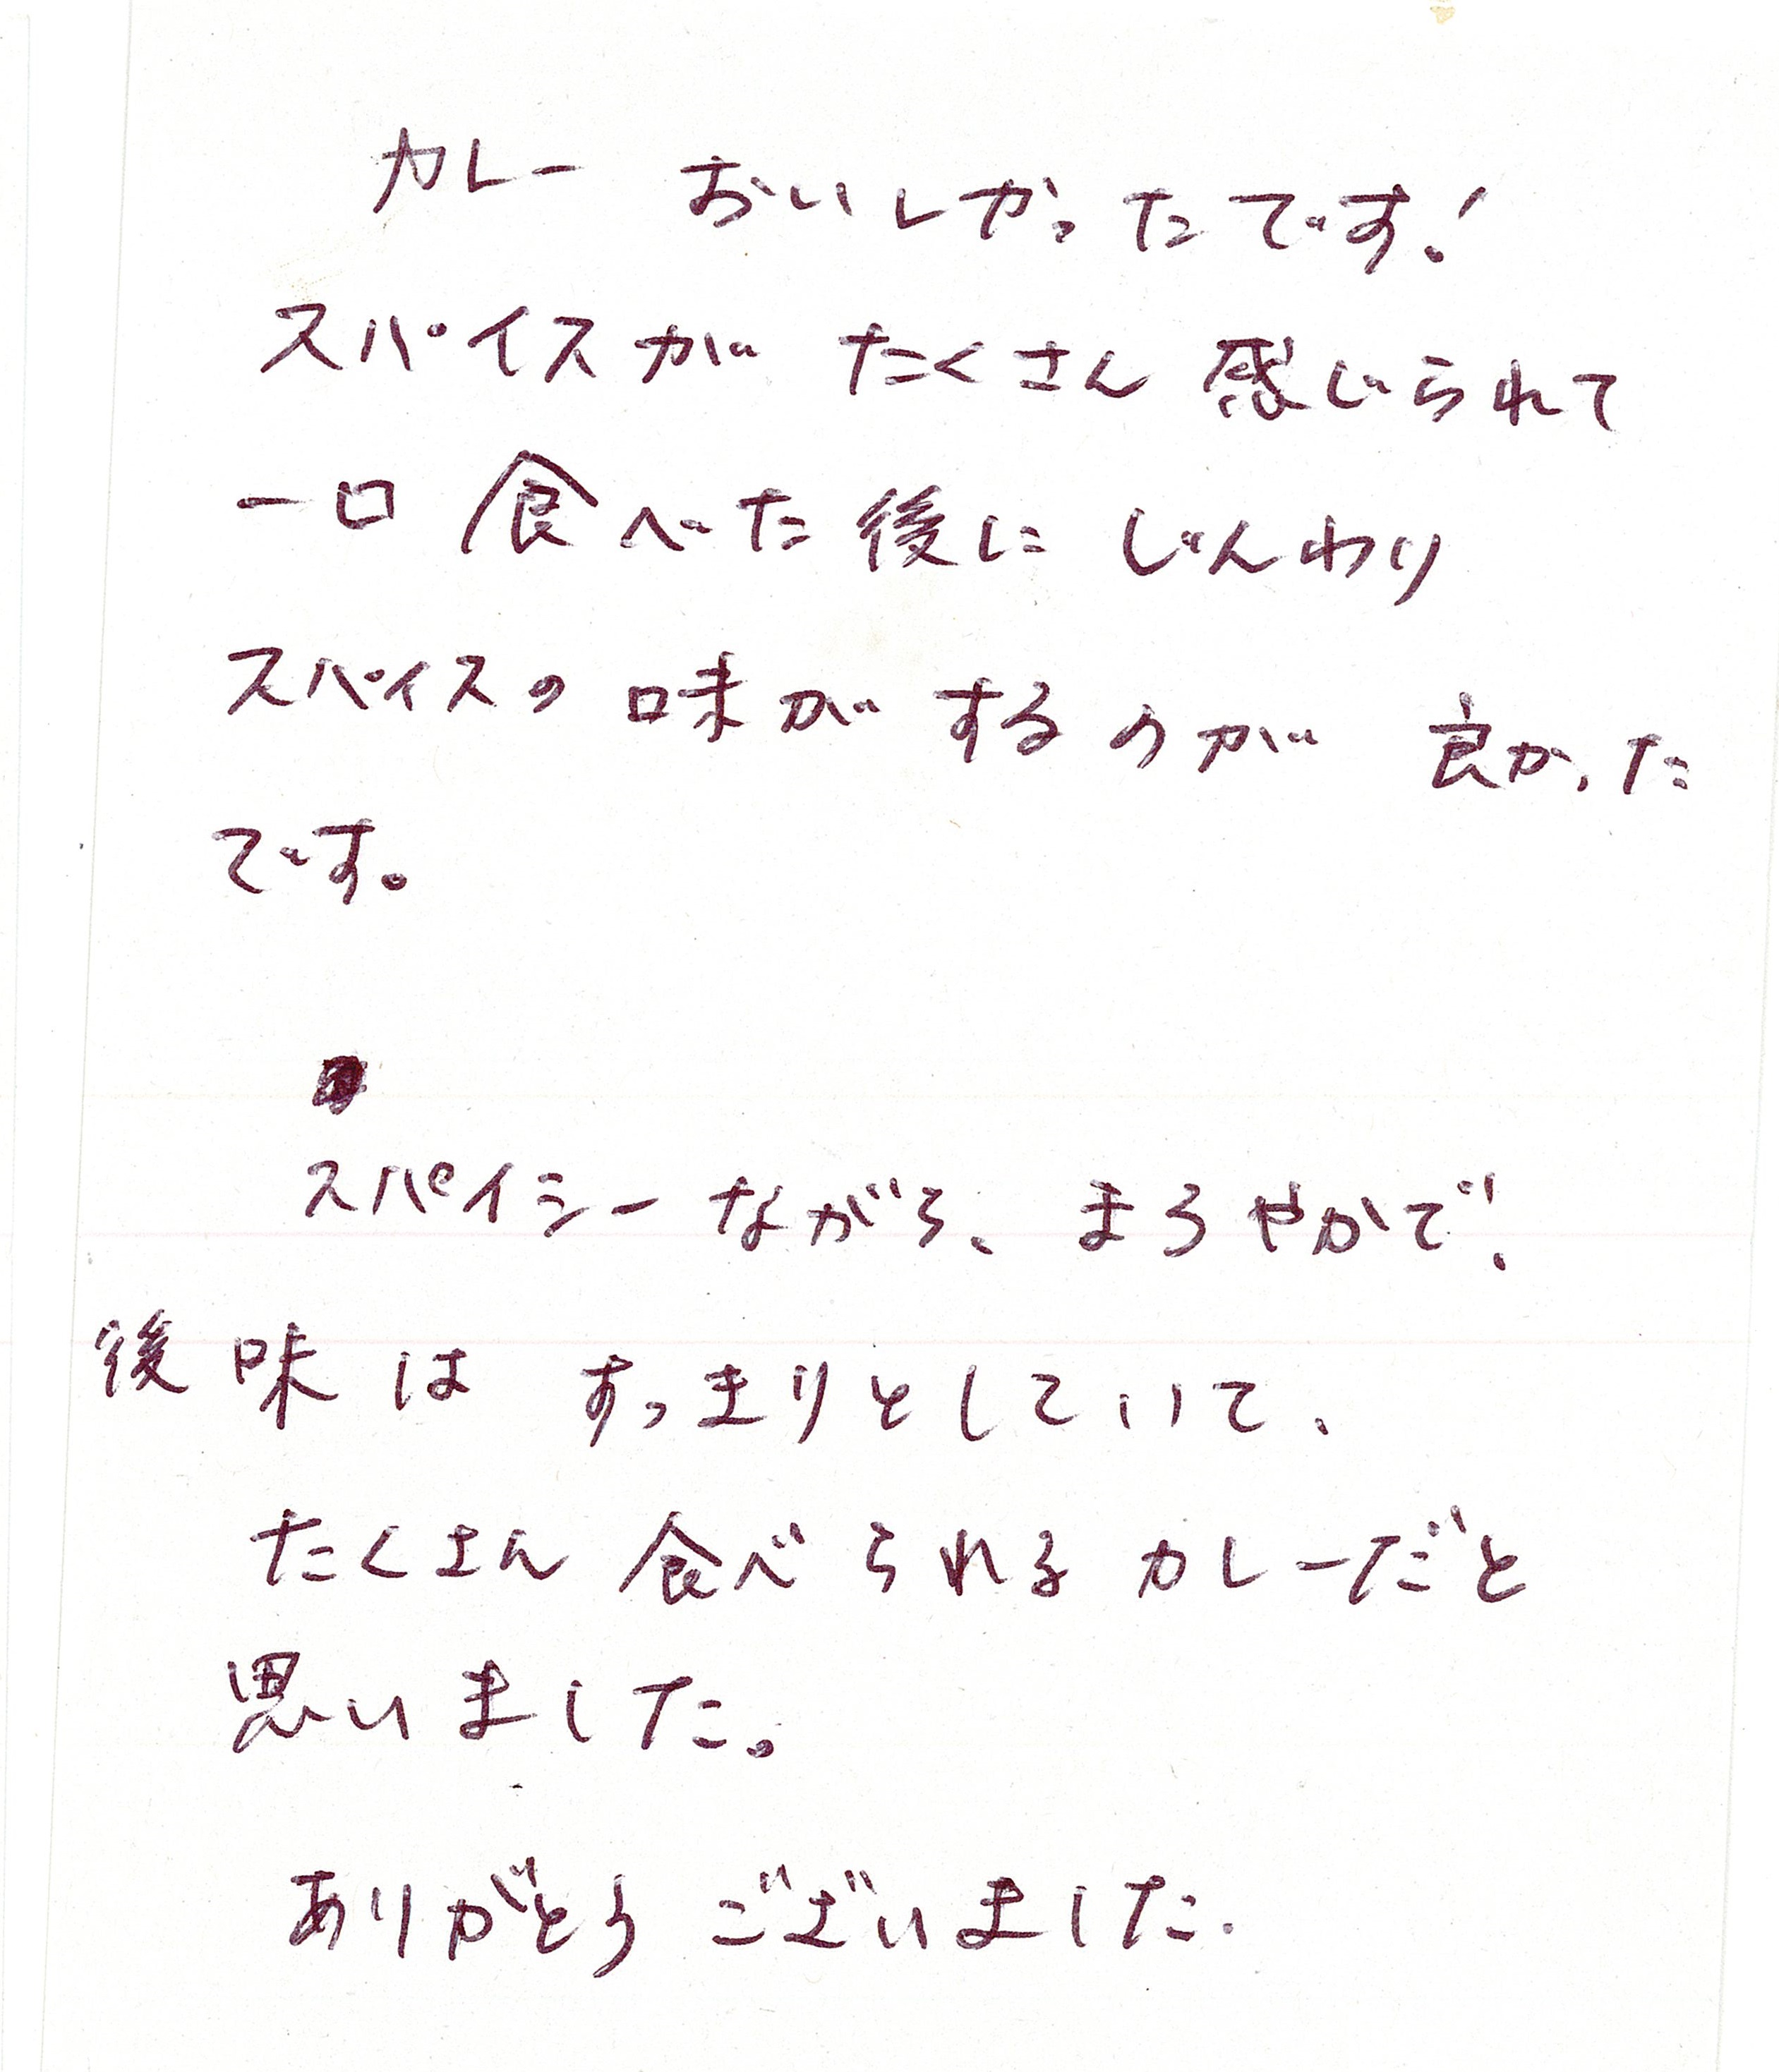 カレー おいしかったです!
スパイスが たくさん 感じられて
一口 食べた 後に じんわり
スパイスの 味が するのが 良かった
です。
スパイシーながら、まろやかで、
後味は すっきりとしていて、
たくさん 食べられる カレーだと
思いました。
ありがとう ございました.